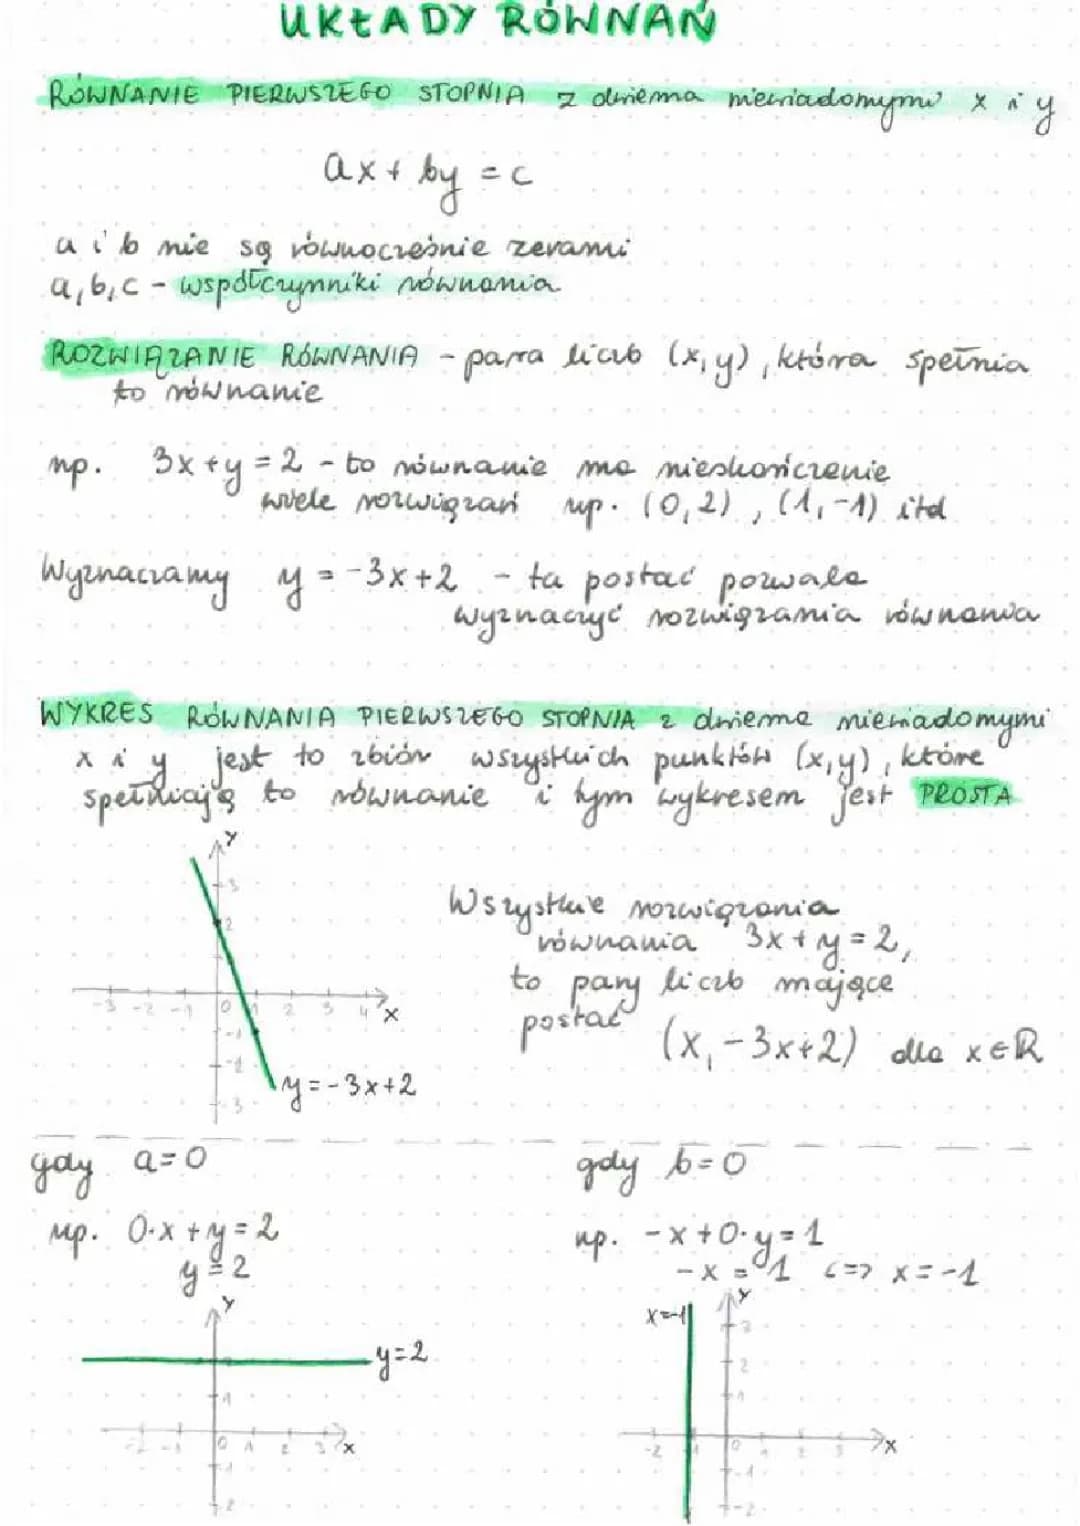 UKŁADY RÓWNAŃ
RÓWNANIE PIERWSZEGO STOPNIA z dwiema niewiadomymi x i y
ax + by = c
a i b nie są równocześnie zerami
a, b, c - współczynniki równania
ROZWIĄZANIE RÓWNANIA - para liczb (x, y), która spełnia
to równanie
np. 3x + y = 2 - to równanie ma nieskończenie
wiele rozwiązań np. (0, 2), (1, -1) itd
Wyznaczamy y = -3x+2 - ta postać pozwala
wyznaczyć rozwiązania równania
WYKRES RÓWNANIA PIERWSZEGO STOPNIA z dwiema niewiadomymi
x i y jest to zbiór wszystkich punktów (x, y), które
spełniają to równanie i tym wykresem jest PROSTA
y
3
2
-3 -2 -1 0 1 2 3 4 x
-1
-2
-3
y = -3x+2
Wszystkie rozwiązania
równania 3x + y = 2,
to pary liczb mające
postać (x, -3x+2) dla x ∈ ℝ
gdy a = 0
np. 0·x + y = 2
y = 2
y
y = 2
1
-2 -1 0 1 2 3 x
-1
-2
gdy b = 0
np. -x + 0·y = 1
-x = 1 <=> x = -1
x=-1
y
3
2
1
-2 0 1 2 3 x
-1
-2